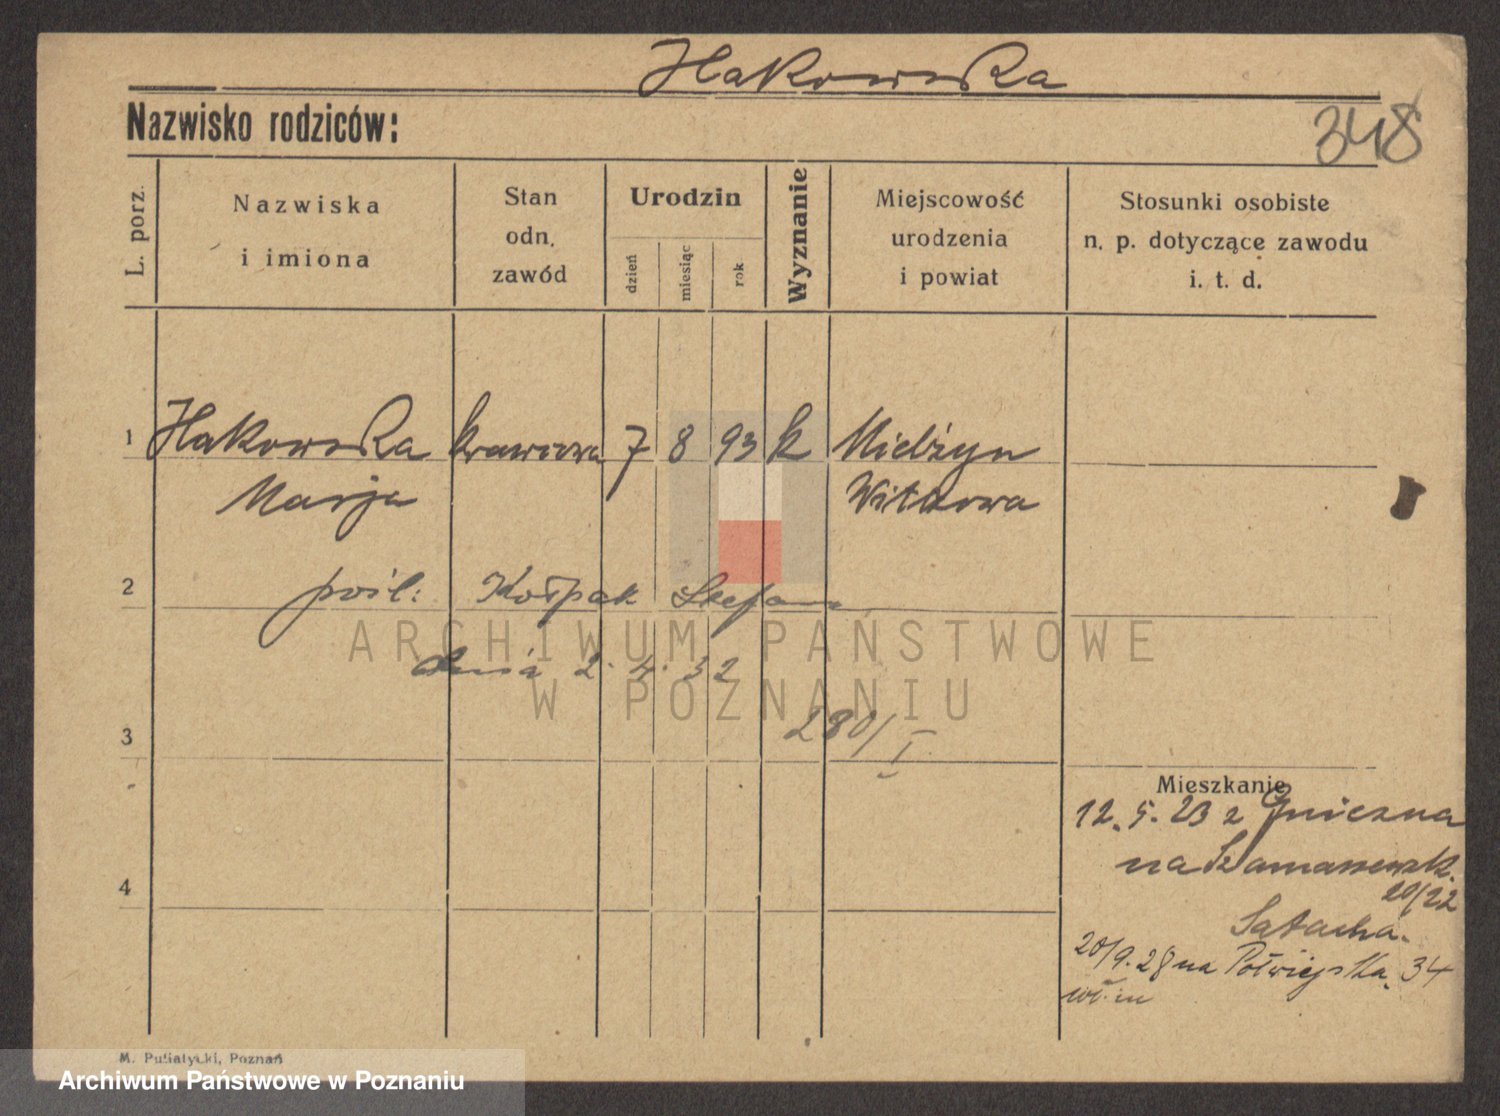 Hakowska
Nazwisko rodziców:
348
L. porz.
Nazwiska
i imiona
Stan
odn.
zawód
Urodzin
dzień
miesiąc
rok
Wyznanie
Miejscowość
urodzenia
i powiat
Stosunki osobiste
n. p. dotyczące zawodu
i. t. d.
1
Hakowska krawcowa 7 8 93 k Mielżyn
Marja Witkowa
2
pośl: Kołpak Stefan
dnia 2.4.32
280/I.
3
Mieszkanie
12.5.23 z Gniezna
na Szamarzewsk.
20/22
4
20/9.28 na Półwiejska 34
M. Pusiatycki, Poznań
ARCHIWUM PAŃSTWOWE
W POZNANIU
Archiwum Państwowe w Poznaniu